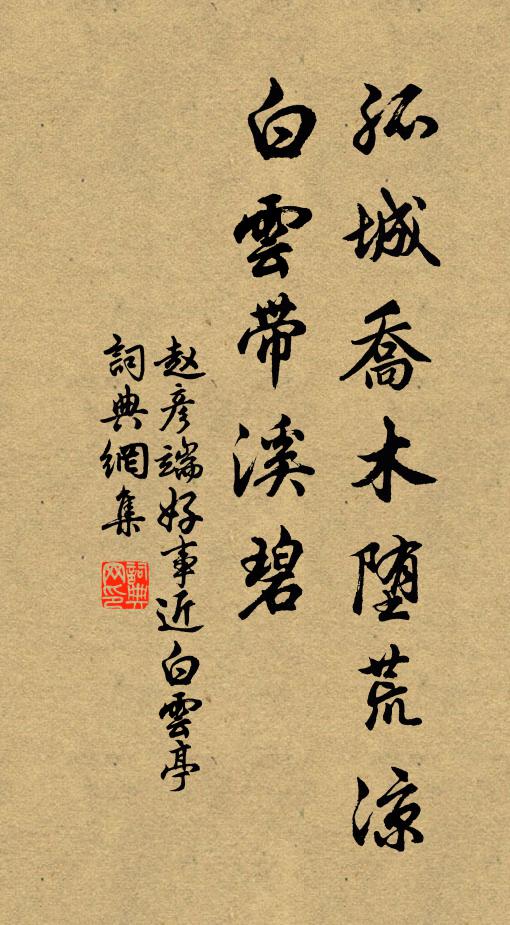 孤城喬木堕荒凉
白雲带溪碧
赵彦端好事近白雲亭
詞典網集
詞典网印